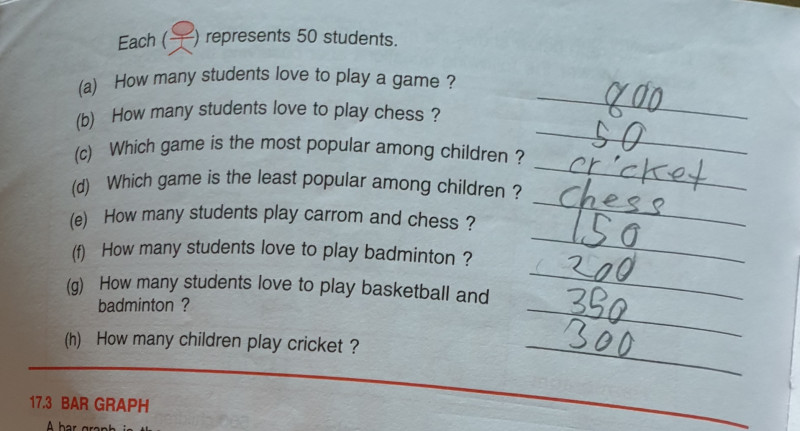 Each ( ) represents 50 students.
(a) How many students love to play a game ? 800
(b) How many students love to play chess ? 50
(c) Which game is the most popular among children ? cricket
(d) Which game is the least popular among children ? chess
(e) How many students play carrom and chess ? 150
(f) How many students love to play badminton ? 200
(g) How many students love to play basketball and
badminton ? 350
(h) How many children play cricket ? 300
17.3 BAR GRAPH
A bar graph is